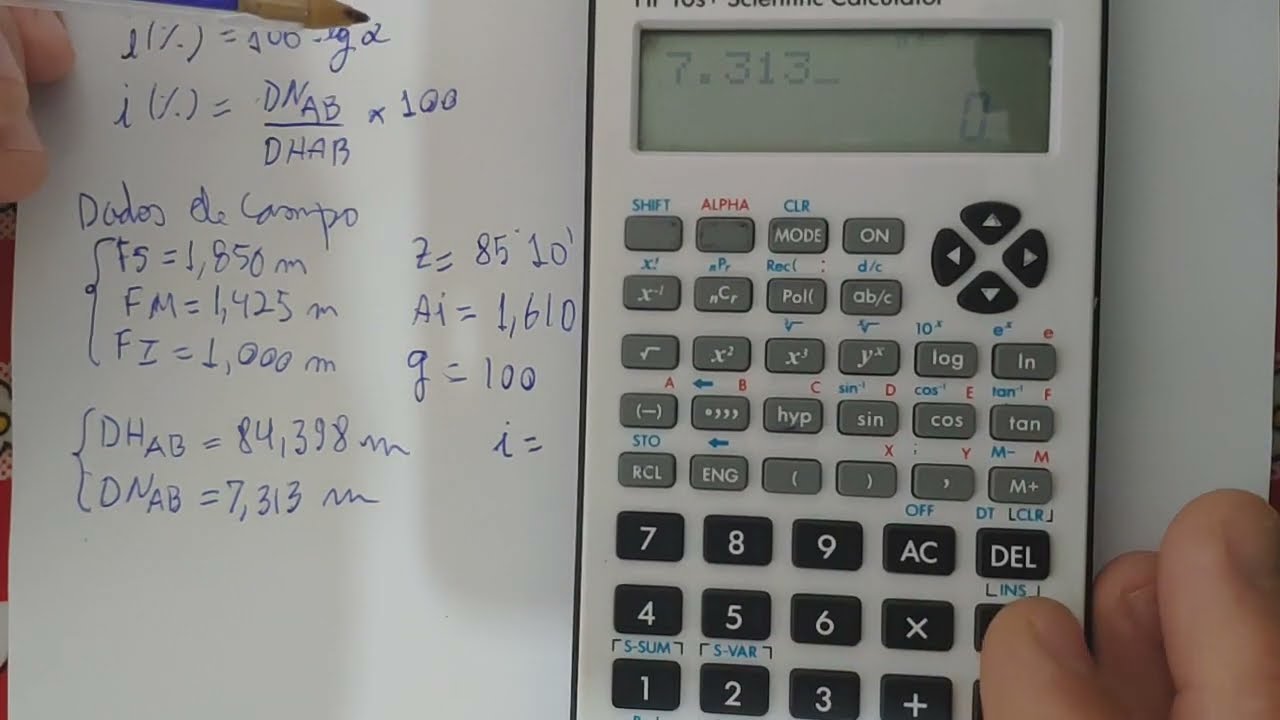 HP 10s+ Scientific Calculator
i(%) = 100 · tg α
i(%) = DNAB / DHAB × 100
Dados de Campo
FS = 1,850 m
FM = 1,425 m
FI = 1,000 m
Z = 85°10'
Ai = 1,610
g = 100
DHAB = 84,398 m
i =
DNAB = 7,313 m
7.313_
0.
SHIFT ALPHA CLR
MODE ON
x! nPr Rec( : d/c
x⁻¹ nCr Pol( ab/c
³√ ˣ√ 10ˣ eˣ e
√ x² x³ yˣ log ln
A ← B C sin⁻¹ D cos⁻¹ E tan⁻¹ F
(−) °,,, hyp sin cos tan
STO ← X ; Y M− M
RCL ENG ( ) , M+
OFF DT CLR
7 8 9 AC DEL
INS
4 5 6 ×
S-SUM S-VAR
1 2 3 +